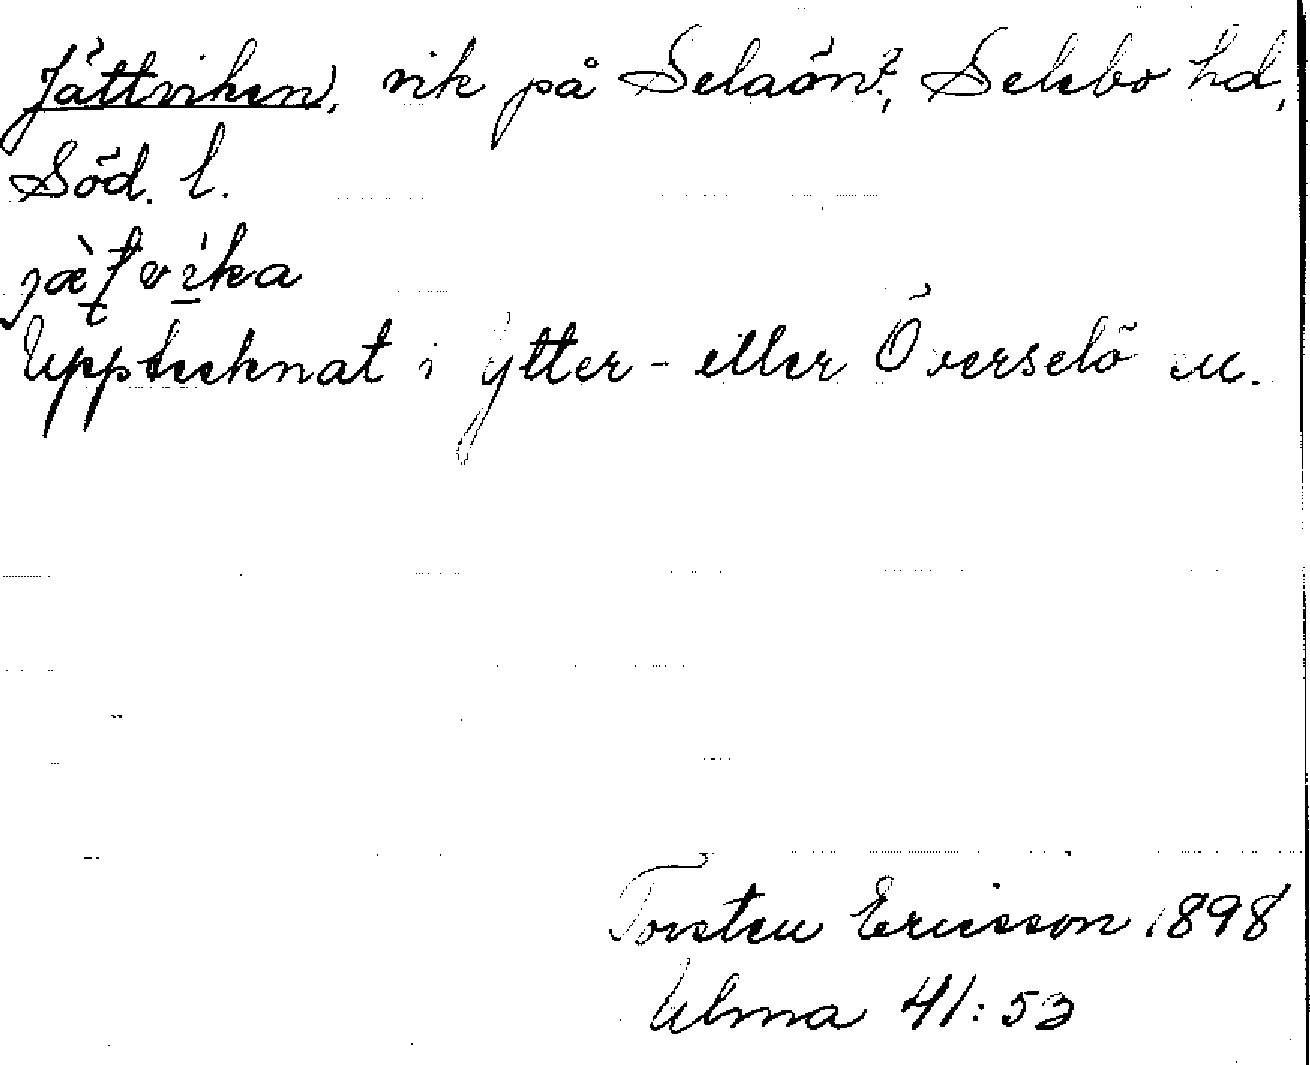 Jättviken, vik på Selaön?, Selebo hd,
Söd. l.
jæ̀t̠vi̠ka
Upptecknat i Ytter- eller Överselö sn.
Torsten Ericsson 1898
Ulma 41:53